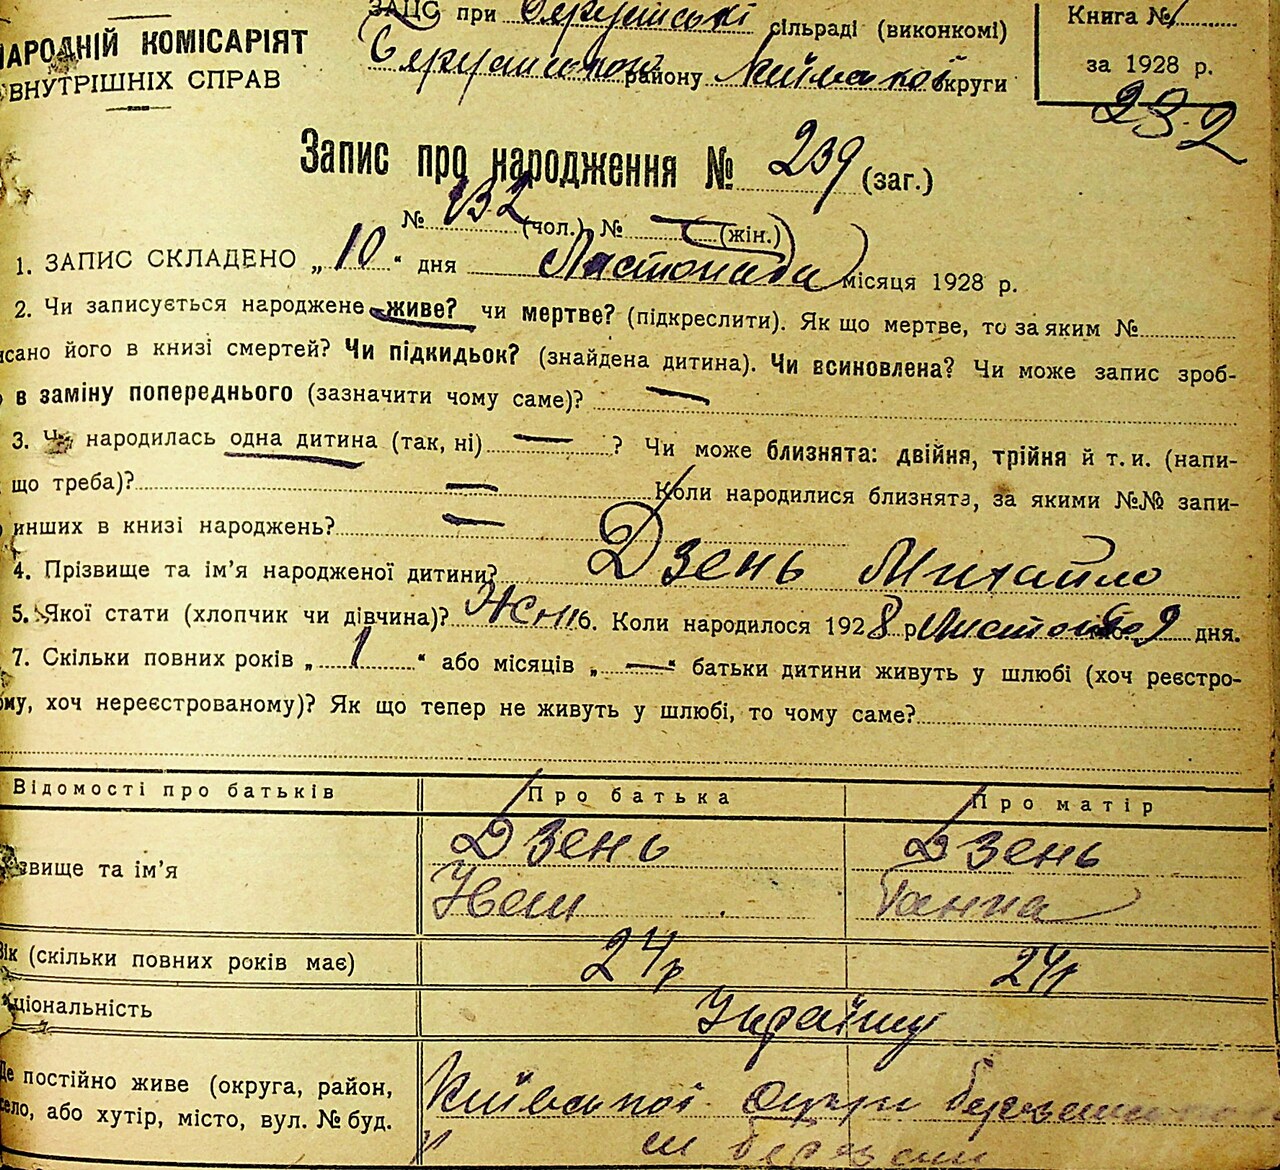 ЗАПС при сільраді (виконкомі)
НАРОДНІЙ КОМІСАРІЯТ
ВНУТРІШНІХ СПРАВ
району Київської округи
Книга №
за 1928 р.
232
Запис про народження № 239 (заг.)
№ 132 (чол.) № — (жін.)
1. ЗАПИС СКЛАДЕНО „10" дня Листопада місяця 1928 р.
2. Чи записується народжене живе? чи мертве? (підкреслити). Як що мертве, то за яким №
исано його в книзі смертей? Чи підкидьок? (знайдена дитина). Чи всиновлена? Чи може запис зроб-
о в заміну попереднього (зазначити чому саме)? —
3. Чи народилась одна дитина (так, ні) — ? Чи може близнята: двійня, трійня й т. и. (напи-
що треба)? — Коли народилися близнята, за якими №№ запи-
инших в книзі народжень? —
4. Прізвище та ім'я народженої дитини? Дзень Михайло
5. Якої стати (хлопчик чи дівчина)? 6. Коли народилось 1928 р. 9 дня.
7. Скільки повних років „1" або місяців „—" батьки дитини живуть у шлюбі (хоч реєстро-
ому, хоч нереєстрованому)? Як що тепер не живуть у шлюбі, то чому саме?
Відомості про батьків Про батька Про матір
звище та ім'я Дзень Дзень
Іван Ганна
Вік (скільки повних років має) 24 р 24 р
ціональність Українці
Де постійно живе (округа, район, Київської округи
село, або хутір, місто, вул. № буд.